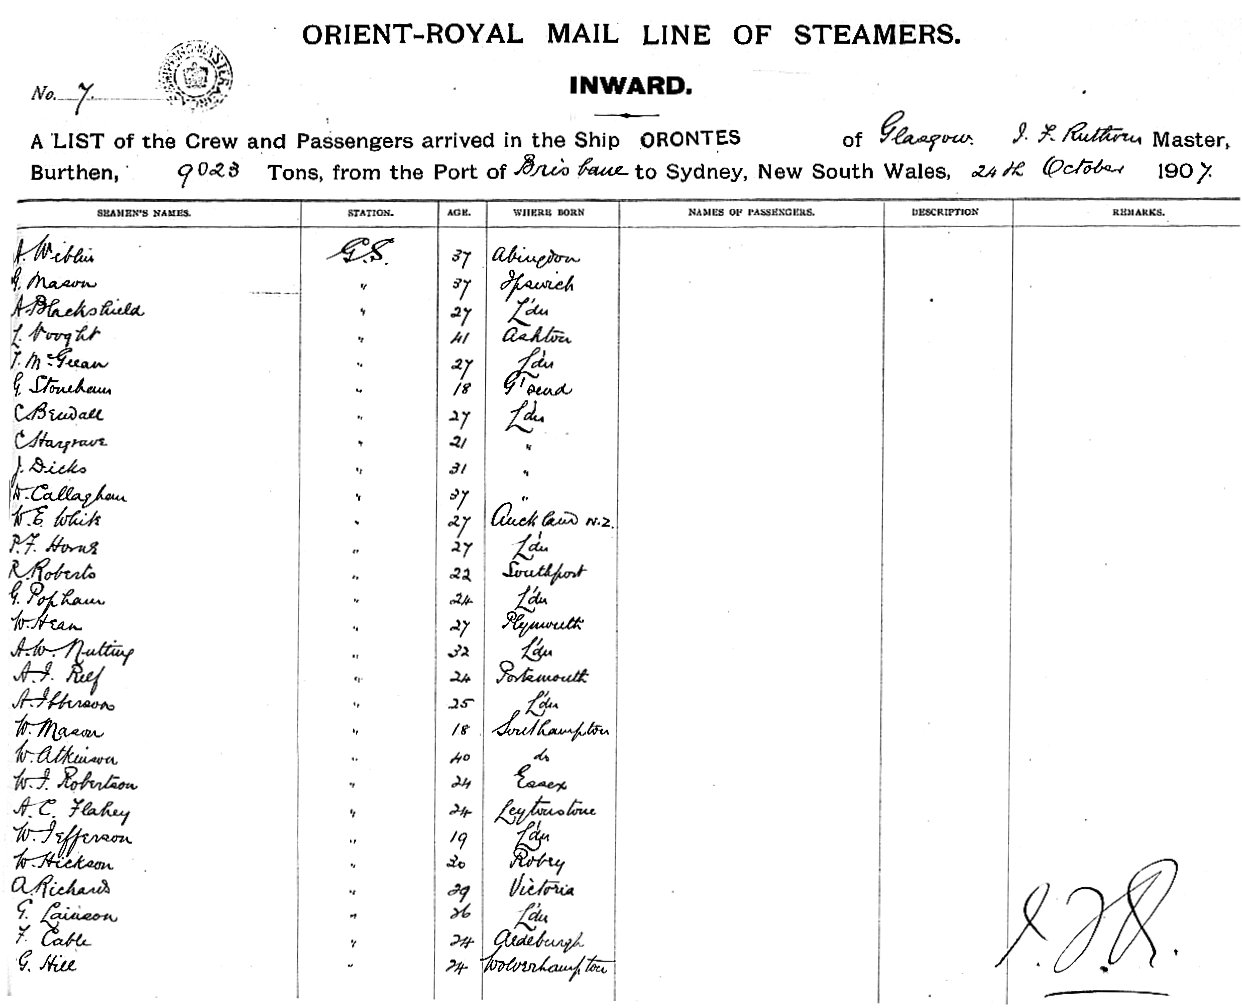 ORIENT-ROYAL MAIL LINE OF STEAMERS.
INWARD.
No. 7.
A LIST of the Crew and Passengers arrived in the Ship ORONTES of Glasgow. J. F. Ruthven Master,
Burthen, 9023 Tons, from the Port of Brisbane to Sydney, New South Wales, 24th October 1907.
SEAMEN'S NAMES. STATION. AGE. WHERE BORN NAMES OF PASSENGERS. DESCRIPTION REMARKS.
A. Wiblin G.S. 37 Abingdon
G. Mason " 37 Ipswich
A Blackshield " 27 L'dn
L. Vooght " 41 Ashton
T. McGrean " 27 L'dn
G. Stoneham " 18 G'send
C Bendall " 27 L'dn
C Hargrave " 21 "
J. Dicks " 31 "
D. Callaghan " 37 "
W. E White " 27 Auckland N.Z.
P. F. Horne " 27 L'dn
R. Roberts " 22 Southport
G. Popham " 24 L'dn
W. Hean " 27 Plymouth
A. W. Nutting " 32 L'dn
A. J. Reef " 24 Portsmouth
A. Ibberson " 25 L'dn
W. Mason " 18 Southampton
W. Atkinson " 40 do
W. J. Robertson " 24 Essex
A. C. Flahey " 24 Leytonstone
W. Jefferson " 19 L'dn
W. Hickson " 20 Robey
A. Richards " 29 Victoria
G. Lainson " 26 L'dn
F. Cable " 24 Aldeburgh
G. Hill " 24 Wolverhampton
J. F. R.